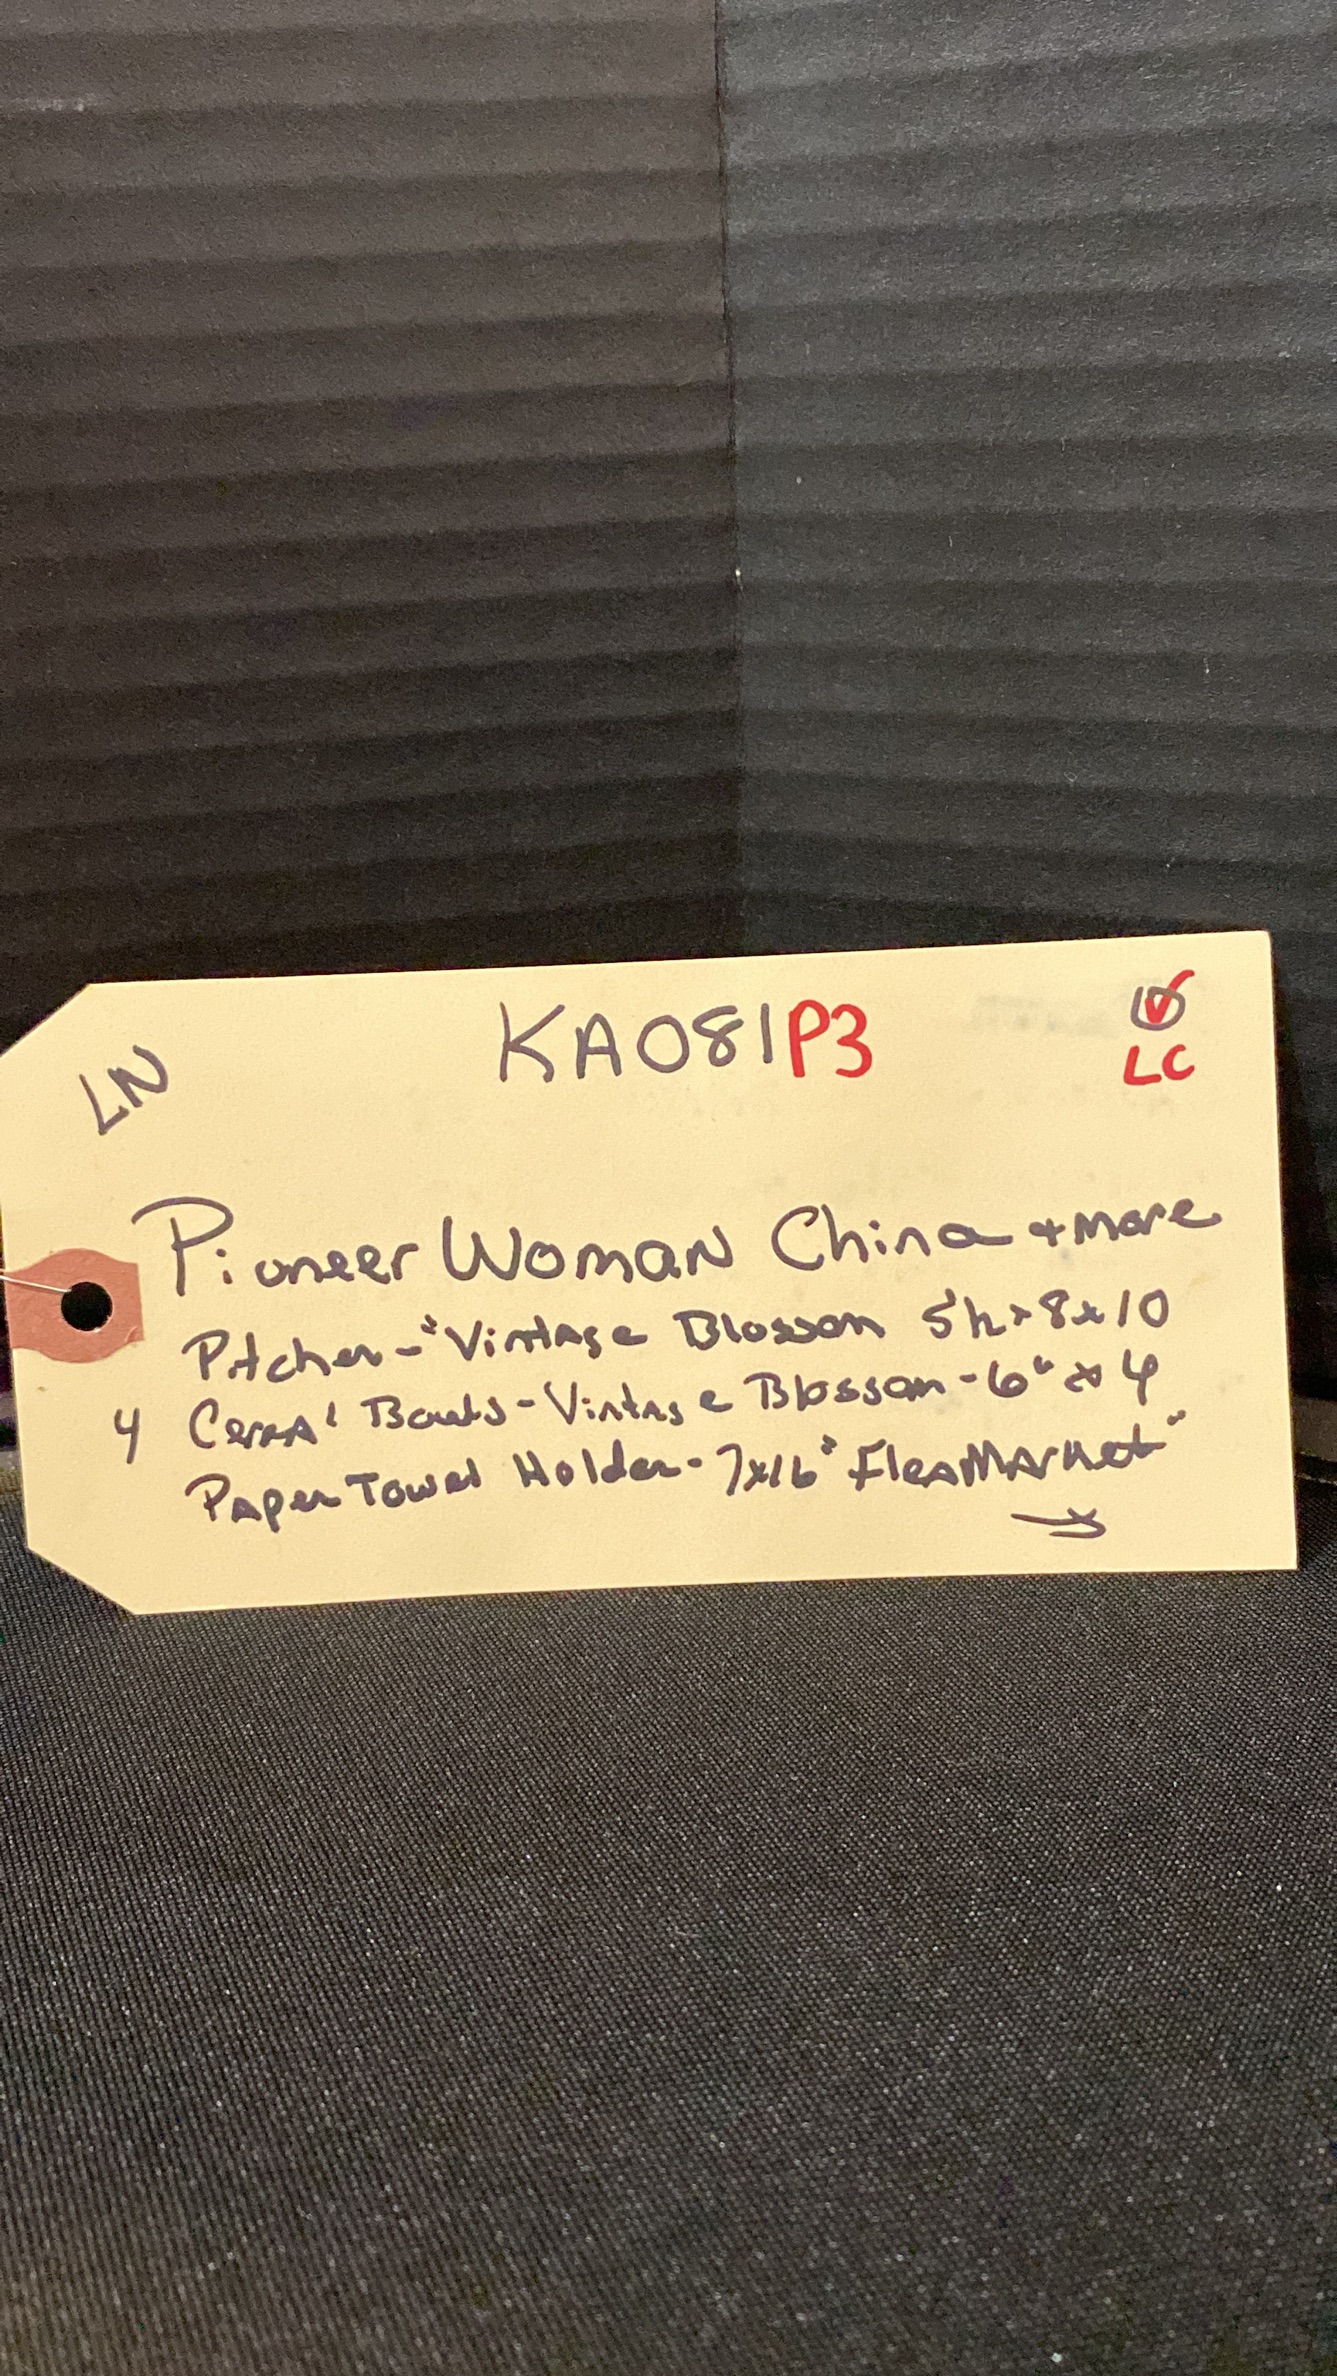 LN
KA081P3
LC
Pioneer Woman China + More
Pitcher - "Vintage Blossom 5"h x 8 x 10
4 Cereal Bowls - Vintage Blossom - 6" x 4
Paper Towel Holder - 7x16 "Flea Market"